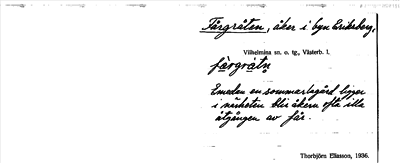 Fårgråten, åker i byn Eriksberg,
Vilhelmina sn. o. tg., Västerb. l.
fårgråtn
Emedan en sommarlagård ligger
i närheten blir åkern ofta illa
åtgången av får.
Thorbjörn Eliasson, 1936.